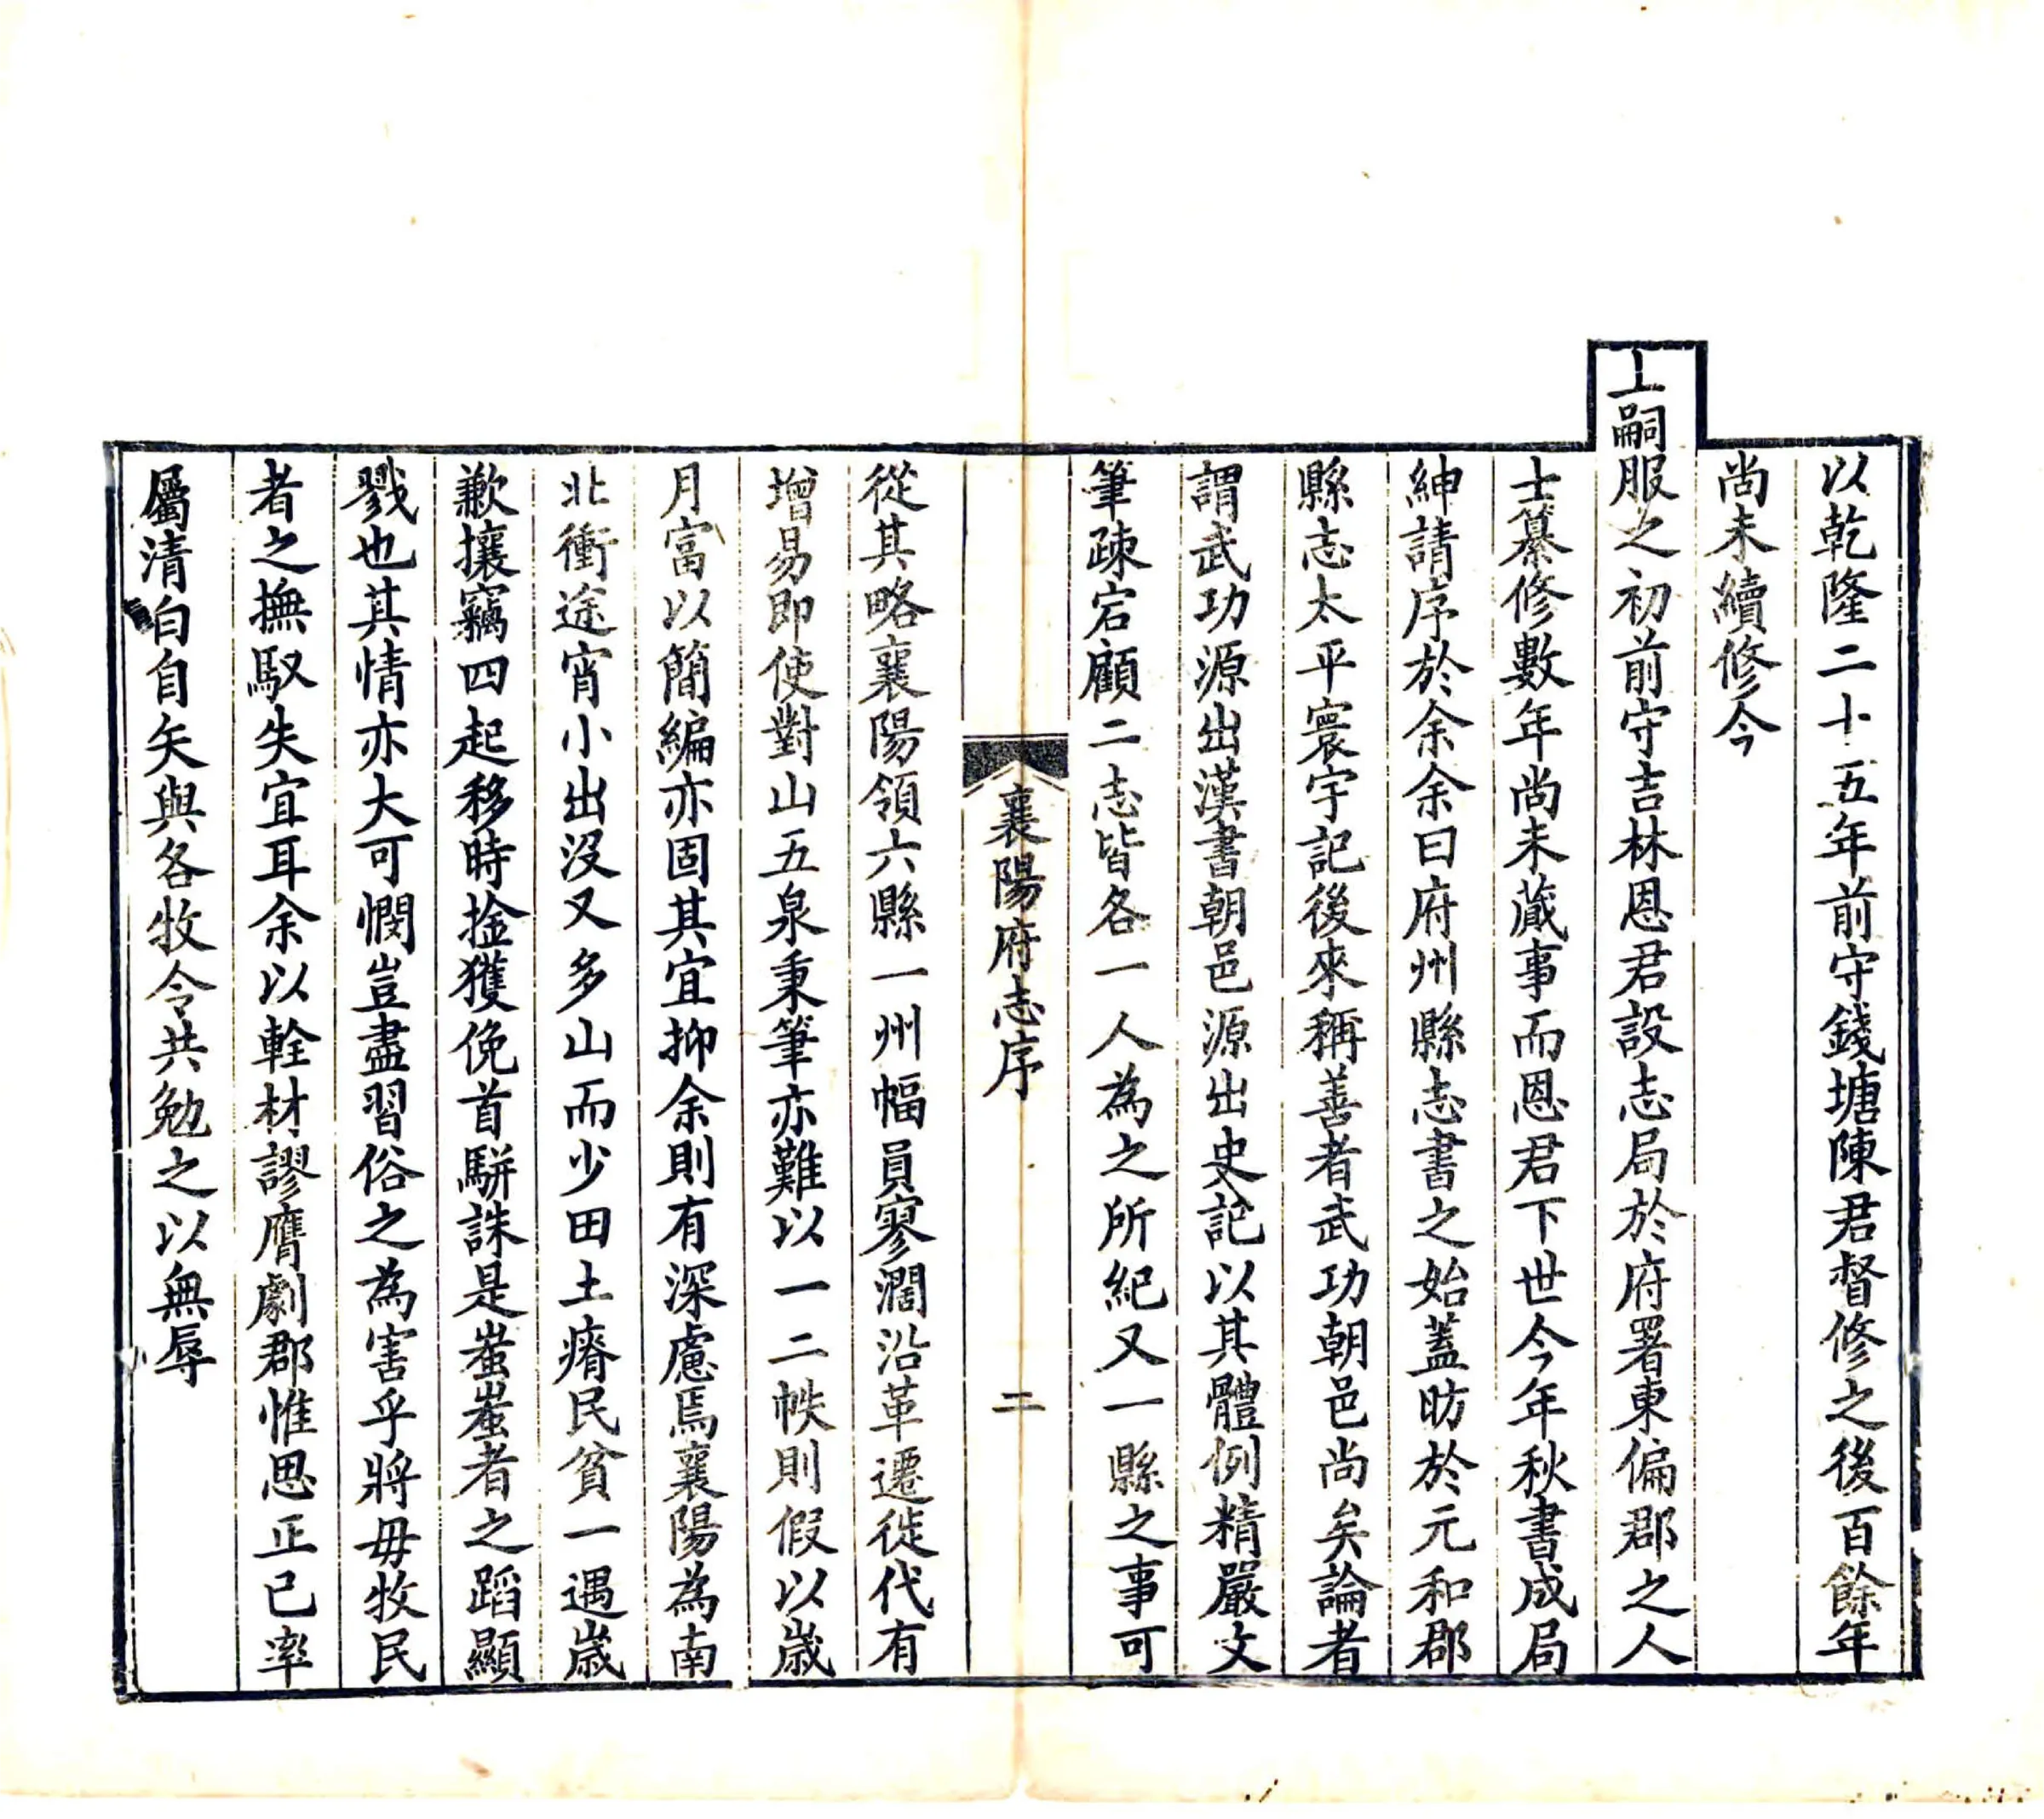 以乾隆二十五年前守錢塘陳君督修之後百餘年
尚未續修今
上嗣服之初前守吉林恩君設志局於府署東偏郡之人
士纂修數年尚未蕆事而恩君下世今年秋書成局
紳請序於余余曰府州縣志書之始蓋昉於元和郡
縣志太平寰宇記後來稱善者武功朝邑尚矣論者
謂武功源出漢書朝邑源出史記以其體例精嚴文
筆疎宕顧二志皆各一人為之所紀又一縣之事可
襄陽府志序
二
從其略襄陽領六縣一州幅員寥濶沿革遷徙代有
增易即使對山五泉秉筆亦難以一二帙則假以歲
月富以簡編亦固其宜抑余則有深慮焉襄陽為南
北衝途宵小出沒又多山而少田土瘠民貧一遇歲
歉攘竊四起移時捡獲俛首駢誅是蚩蚩者之蹈顯
戮也其情亦大可憫豈盡習俗之為害乎將毋牧民
者之撫馭失宜耳余以輇材謬膺劇郡惟思正已率
屬清白自矢與各牧令共勉之以無辱